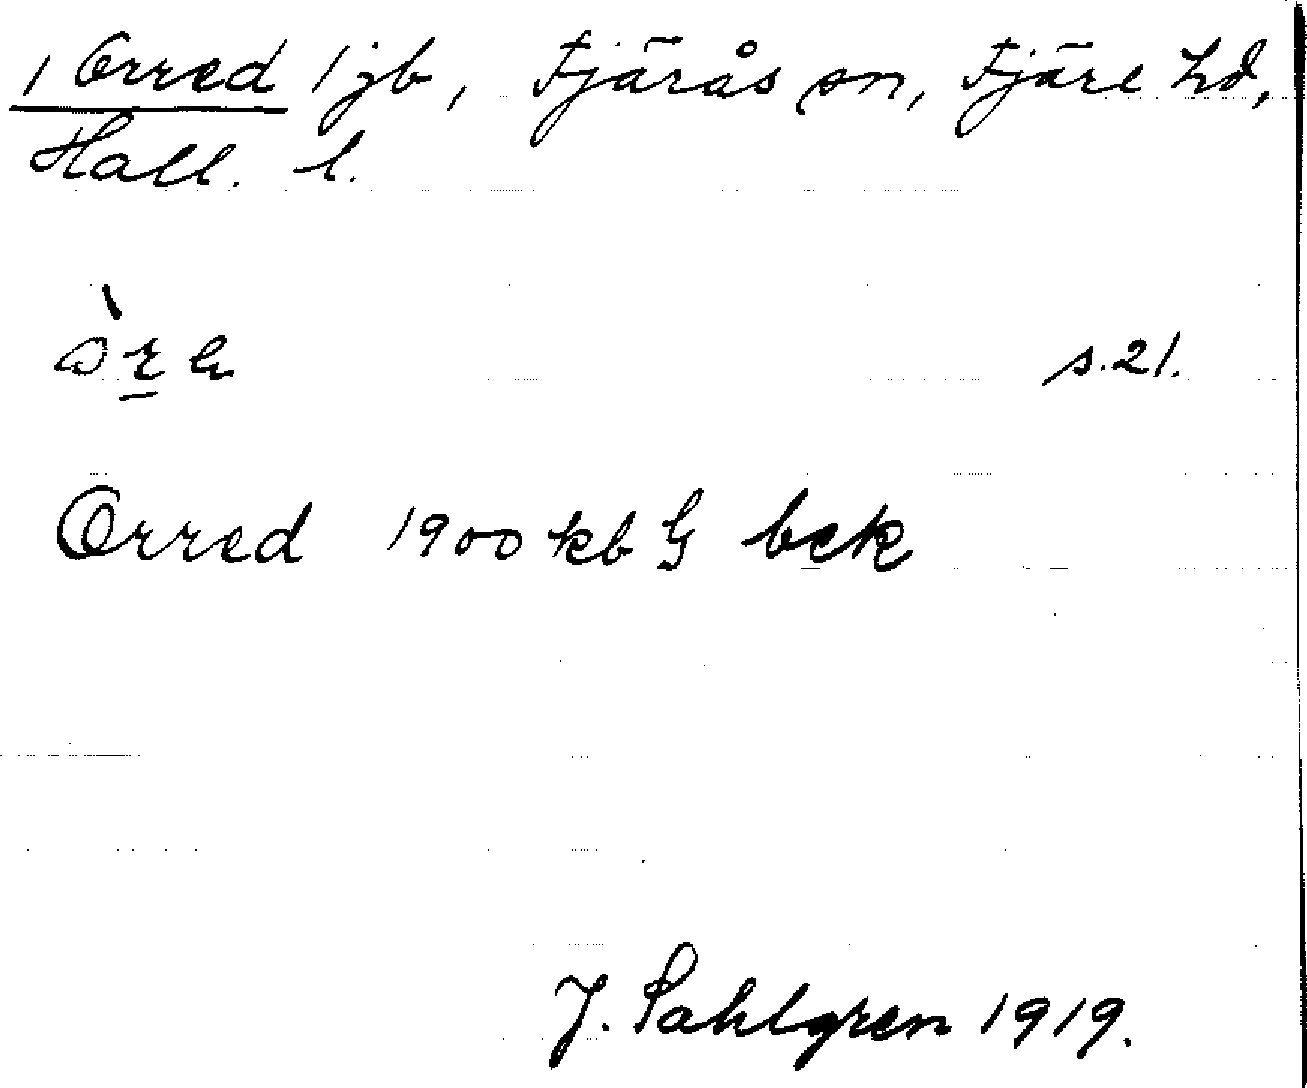 1 Orred 1 jb, Fjärås sn, Fjäre hd,
Hall. l.
s. 21.
Orred 1900 kb G bek
J. Sahlgren 1919.